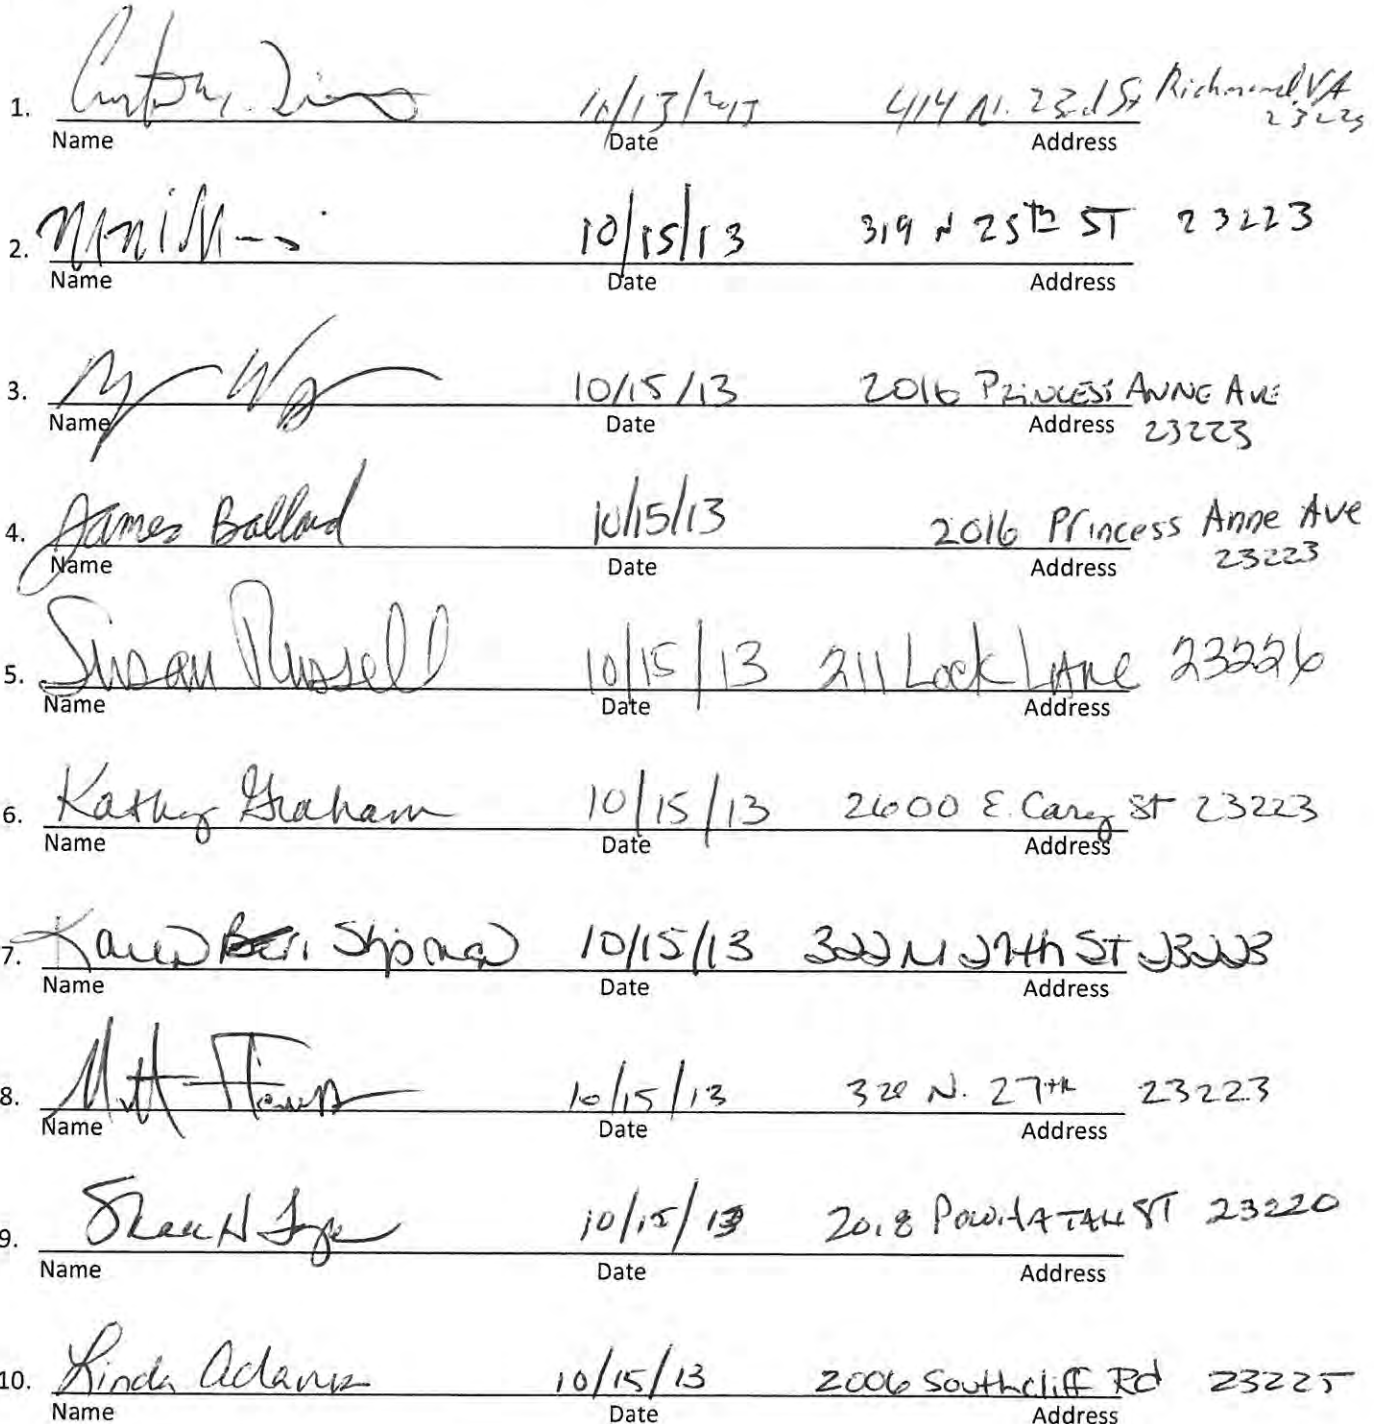 1. 10/13/2013 414 N. 23rd St Richmond VA
23223
Name Date Address
2. 10/15/13 319 N 25th ST 23223
Name Date Address
3. 10/15/13 2016 PRINCESS ANNE AVE
Name Date Address 23223
4. James Ballard 10/15/13 2016 Princess Anne Ave
Name Date Address 23223
5. Susan Russell 10/15/13 211 Lock LAne 23226
Name Date Address
6. Kathy Graham 10/15/13 2600 E. Cary St 23223
Name Date Address
7. Karen 10/15/13 322 N 27th ST 23223
Name Date Address
8. Matt 10/15/13 N. 27th 23223
Name Date Address
9. 10/15/13 2018 POWHATAN ST 23220
Name Date Address
10. Linda Adams 10/15/13 2006 Southcliff Rd 23225
Name Date Address